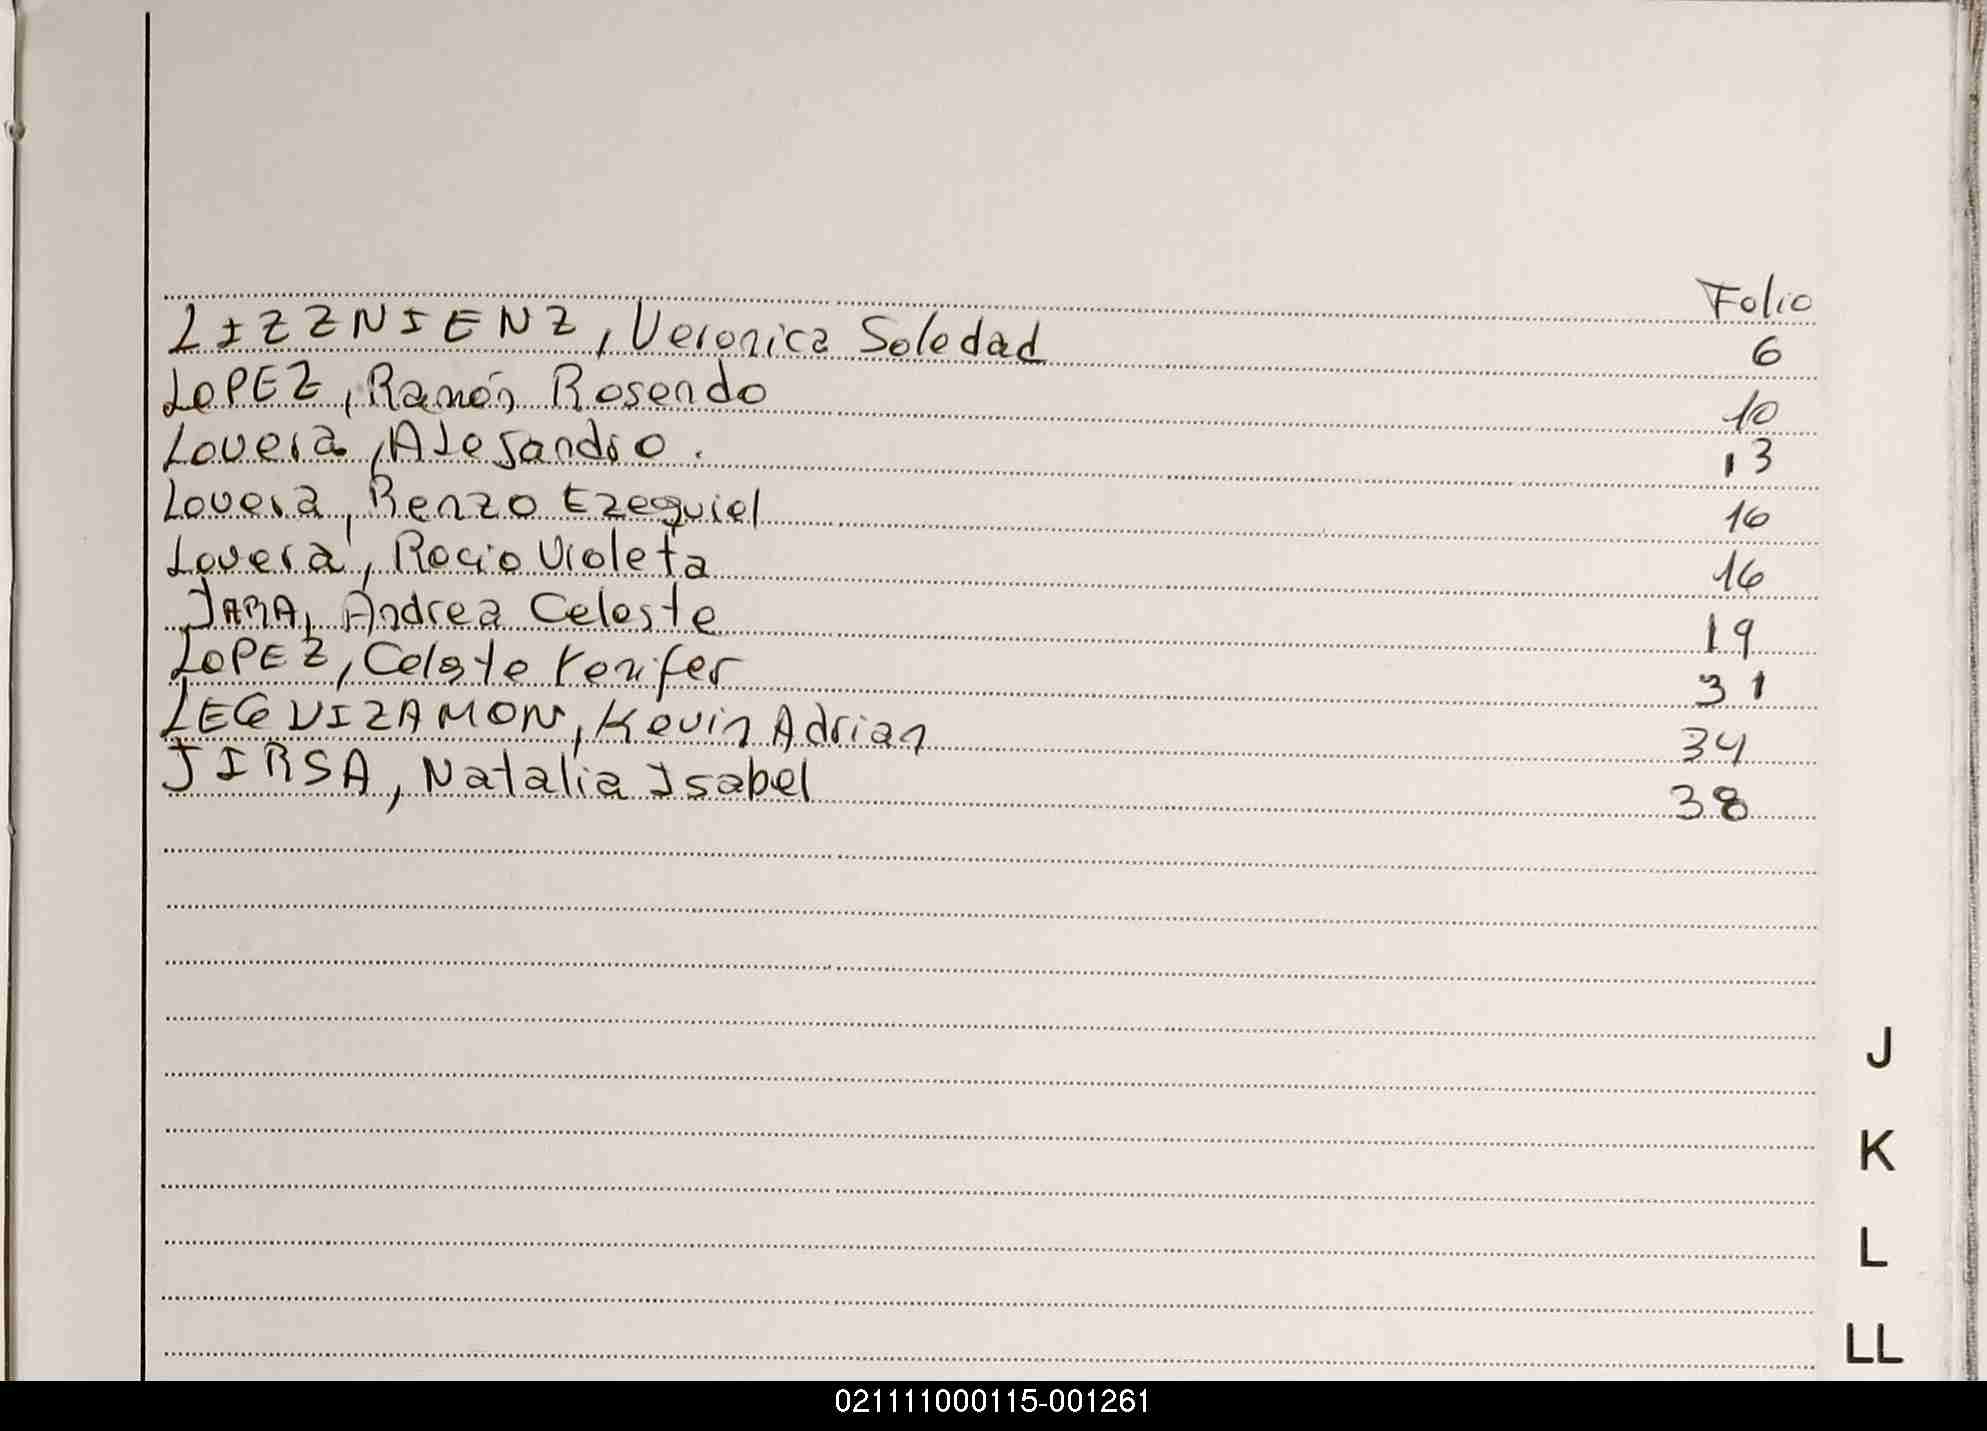 Folio
LIZZNIENZ, Veronica Soledad 6
LOPEZ, Ramón Rosendo 10
Lovera, Alejandro. 13
Lovera, Renzo Ezequiel 16
Lovera, Rocio Violeta 16
JARA, Andrea Celeste 19
LOPEZ, Celste Yenifer 31
LEGUIZAMON, Kevin Adrian 34
JIRSA, Natalia Isabel 38
J
K
L
LL
021111000115-001261